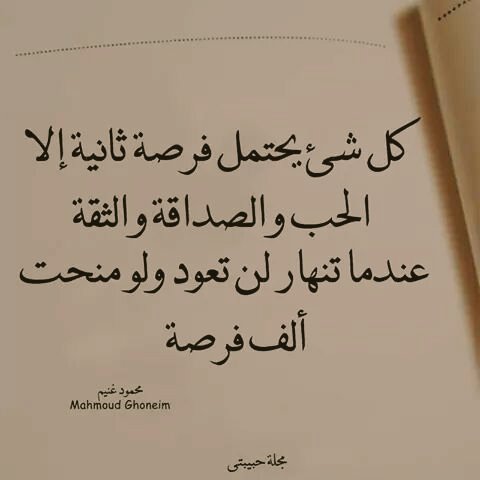 كل شئ يحتمل فرصة ثانية إلا
الحب والصداقة والثقة
عندما تنهار لن تعود ولو منحت
ألف فرصة
محمود غنيم
Mahmoud Ghoneim
مجلة حبيبتى